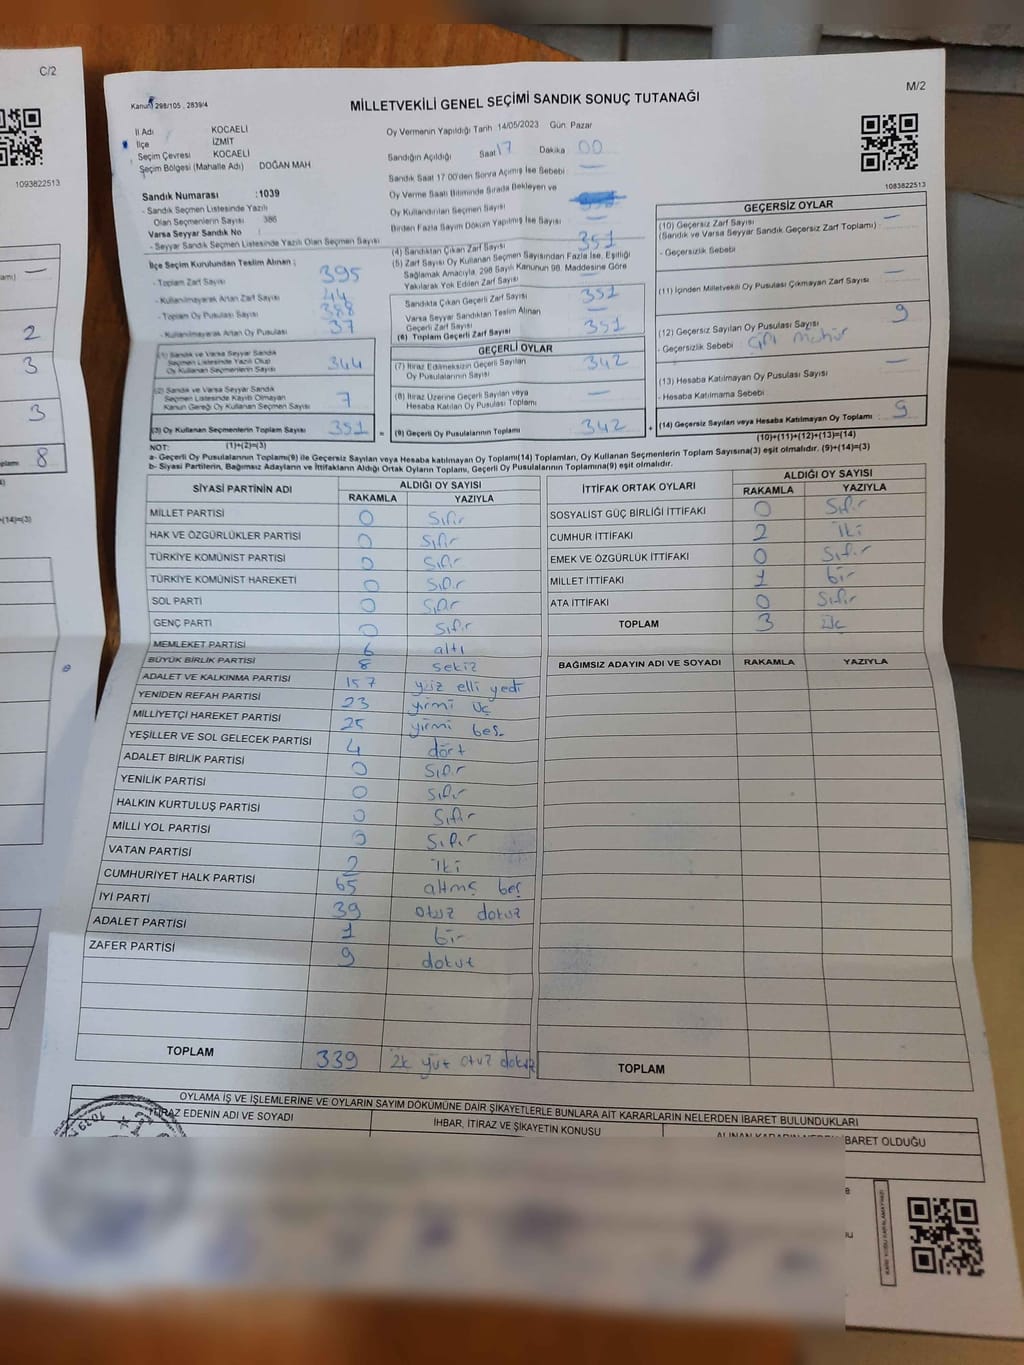 C/2
1093822513
2
3
3
8
M/2
Kanun 298/105 , 2839/4
MİLLETVEKİLİ GENEL SEÇİMİ SANDIK SONUÇ TUTANAĞI
1083822513
İl Adı KOCAELİ
İlçe İZMİT
Seçim Çevresi KOCAELİ
Seçim Bölgesi (Mahalle Adı) DOĞAN MAH
Sandık Numarası :1039
- Sandık Seçmen Listesinde Yazılı
Olan Seçmenlerin Sayısı 386
Varsa Seyyar Sandık No :
- Seyyar Sandık Seçmen Listesinde Yazılı Olan Seçmen Sayısı
İlçe Seçim Kurulundan Teslim Alınan ;
- Toplam Zarf Sayısı 395
- Kullanılmayarak Artan Zarf Sayısı 44
- Toplam Oy Pusulası Sayısı 388
- Kullanılmayarak Artan Oy Pusulası 37
(1) Sandık ve Varsa Seyyar Sandık
Seçmen Listesinde Yazılı Olup
Oy Kullanan Seçmenlerin Sayısı 344
(2) Sandık ve Varsa Seyyar Sandık
Seçmen Listesinde Kayıtlı Olmayan
Kanun Gereği Oy Kullanan Seçmen Sayısı 7
(3) Oy Kullanan Seçmenlerin Toplam Sayısı 351
(1)+(2)=(3)
Oy Vermenin Yapıldığı Tarih 14/05/2023 Gün: Pazar
Sandığın Açıldığı Saat 17 Dakika 00
Sandık Saat 17 00'den Sonra Açılmış İse Sebebi : —
Oy Verme Saati Bitiminde Sırada Bekleyen ve
Oy Kullandırılan Seçmen Sayısı
Birden Fazla Sayım Döküm Yapılmış İse Sayısı —
(4) Sandıktan Çıkan Zarf Sayısı 351
(5) Zarf Sayısı Oy Kullanan Seçmen Sayısından Fazla İse, Eşitliği
Sağlamak Amacıyla, 298 Sayılı Kanunun 98. Maddesine Göre
Yakılarak Yok Edilen Zarf Sayısı —
Sandıkta Çıkan Geçerli Zarf Sayısı 351
Varsa Seyyar Sandıktan Teslim Alınan
Geçerli Zarf Sayısı —
(6) Toplam Geçerli Zarf Sayısı 351
GEÇERLİ OYLAR
(7) İtiraz Edilmeksizin Geçerli Sayılan
Oy Pusulalarının Sayısı 342
(8) İtiraz Üzerine Geçerli Sayılan veya
Hesaba Katılan Oy Pusulası Toplamı —
(9) Geçerli Oy Pusulalarının Toplamı 342
GEÇERSİZ OYLAR
(10) Geçersiz Zarf Sayısı —
(Sandık ve Varsa Seyyar Sandık Geçersiz Zarf Toplamı)
- Geçersizlik Sebebi
(11) İçinden Milletvekili Oy Pusulası Çıkmayan Zarf Sayısı —
(12) Geçersiz Sayılan Oy Pusulası Sayısı 9
- Geçersizlik Sebebi Çift Mühür
(13) Hesaba Katılmayan Oy Pusulası Sayısı —
- Hesaba Katılmama Sebebi
(14) Geçersiz Sayılan veya Hesaba Katılmayan Oy Toplamı : 9
(10)+(11)+(12)+(13)=(14)
NOT:
a- Geçerli Oy Pusulasının Toplamı(9) ile Geçersiz Sayılan veya Hesaba Katılmayan Oy Toplamı(14) Toplamları, Oy Kullanan Seçmenlerin Toplam Sayısına(3) eşit olmalıdır. (9)+(14)=(3)
b- Siyasi Partilerin, Bağımsız Adayların ve İttifakların Aldığı Ortak Oyların Toplamı, Geçerli Oy Pusulalarının Toplamına(9) eşit olmalıdır.
SİYASİ PARTİNİN ADI ALDIĞI OY SAYISI
RAKAMLA YAZIYLA
MİLLET PARTİSİ 0 Sıfır
HAK VE ÖZGÜRLÜKLER PARTİSİ 0 Sıfır
TÜRKİYE KOMÜNİST PARTİSİ 0 Sıfır
TÜRKİYE KOMÜNİST HAREKETİ 0 Sıfır
SOL PARTİ 0 Sıfır
GENÇ PARTİ 0 Sıfır
MEMLEKET PARTİSİ 6 altı
BÜYÜK BİRLİK PARTİSİ 8 sekiz
ADALET VE KALKINMA PARTİSİ 157 yüz elli yedi
YENİDEN REFAH PARTİSİ 23 yirmi üç
MİLLİYETÇİ HAREKET PARTİSİ 25 yirmi beş
YEŞİLLER VE SOL GELECEK PARTİSİ 4 dört
ADALET BİRLİK PARTİSİ 0 Sıfır
YENİLİK PARTİSİ 0 Sıfır
HALKIN KURTULUŞ PARTİSİ 0 Sıfır
MİLLİ YOL PARTİSİ 0 Sıfır
VATAN PARTİSİ 2 iki
CUMHURİYET HALK PARTİSİ 65 altmış beş
İYİ PARTİ 39 otuz dokuz
ADALET PARTİSİ 1 bir
ZAFER PARTİSİ 9 dokuz
TOPLAM 339 üç yüz otuz dokuz
İTTİFAK ORTAK OYLARI ALDIĞI OY SAYISI
RAKAMLA YAZIYLA
SOSYALİST GÜÇ BİRLİĞİ İTTİFAKI 0 Sıfır
CUMHUR İTTİFAKI 2 iki
EMEK VE ÖZGÜRLÜK İTTİFAKI 0 Sıfır
MİLLET İTTİFAKI 1 bir
ATA İTTİFAKI 0 Sıfır
TOPLAM 3 üç
BAĞIMSIZ ADAYIN ADI VE SOYADI RAKAMLA YAZIYLA
TOPLAM
OYLAMA İŞ VE İŞLEMLERİNE VE OYLARIN SAYIM DÖKÜMÜNE DAİR ŞİKAYETLERLE BUNLARA AİT KARARLARIN NELERDEN İBARET BULUNDUKLARI
İTİRAZ EDENİN ADI VE SOYADI İHBAR, İTİRAZ VE ŞİKAYETİN KONUSU ALINAN KARARIN NEDEN İBARET OLDUĞU